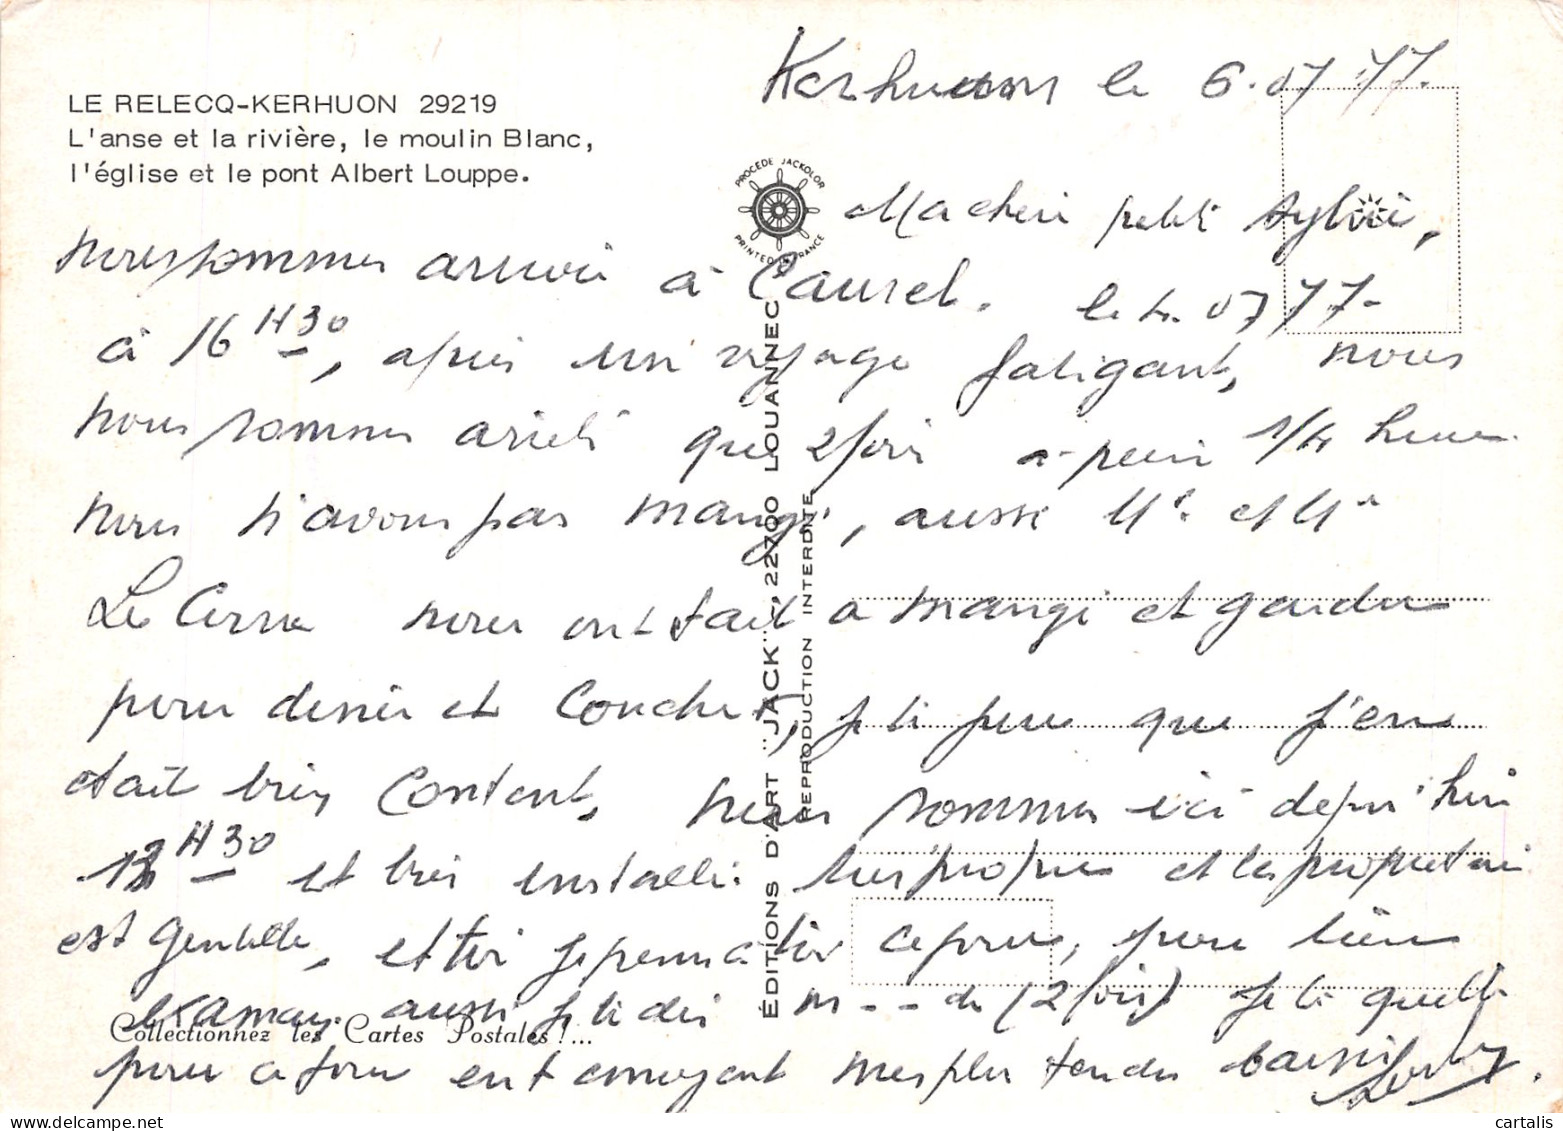 LE RELECQ-KERHUON 29219
L'anse et la rivière, le moulin Blanc,
l'église et le pont Albert Louppe.
PROCEDE JACKOLOR
PRINTED IN FRANCE
ÉDITIONS D'ART "JACK" - 22700 LOUANNEC
REPRODUCTION INTERDITE
Kerhuon le 6.07 77.
Ma cheri petit Sylvie,
nous sommes arrivé à Caurel. le 4. 07 77-
à 16 H30, après un voyage fatigant, nous
nous sommes arreté que 2 fois a peine 1/4 heure
nous n'avons pas mangé, aussi Mr et Me
Le Corre nous ont fait a mangé et garder
pour diner et coucher, je ti jure que j'en
était bien content, nous sommes ici depui hier
12 H30 et bien installé très propre et les propriétaire
est gentille, et toi je pense a toi ce jour, pour
maman aussi je te dis m---de (2 fois) je te quelle
pour ce jour en t'envoyant mes plus tendres baisers
Collectionnez les Cartes Postales !...
cartalis